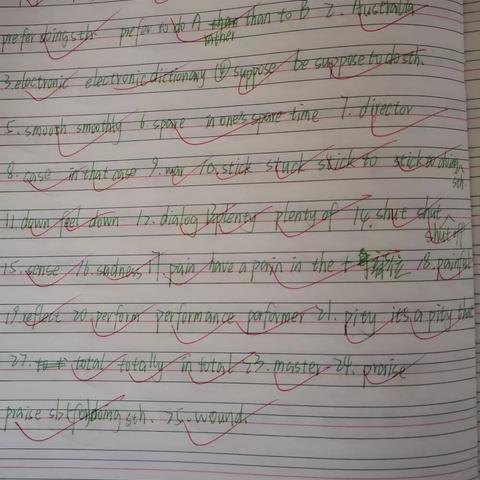 prefer doing sth. prefer to do A rather than to B 2. Australia
3. electronic electronic dictionary ④ suppose be suppose to do sth.
5. smooth smoothly 6. spare in one's spare time 7. director
8. case in that case 9. war 10. stick stuck stick to stick to doing sth.
11. down feel down 12. dialog 13. plenty plenty of 14. shut shut shut off
15. sense 16. sadness 17. pain have a pain in the + 18. painful
19. reflect 20. perform performance performer 21. pity it's a pity that
22. total totally in total 23. master 24. praise
praise sb (for) doing sth. 25. wound.